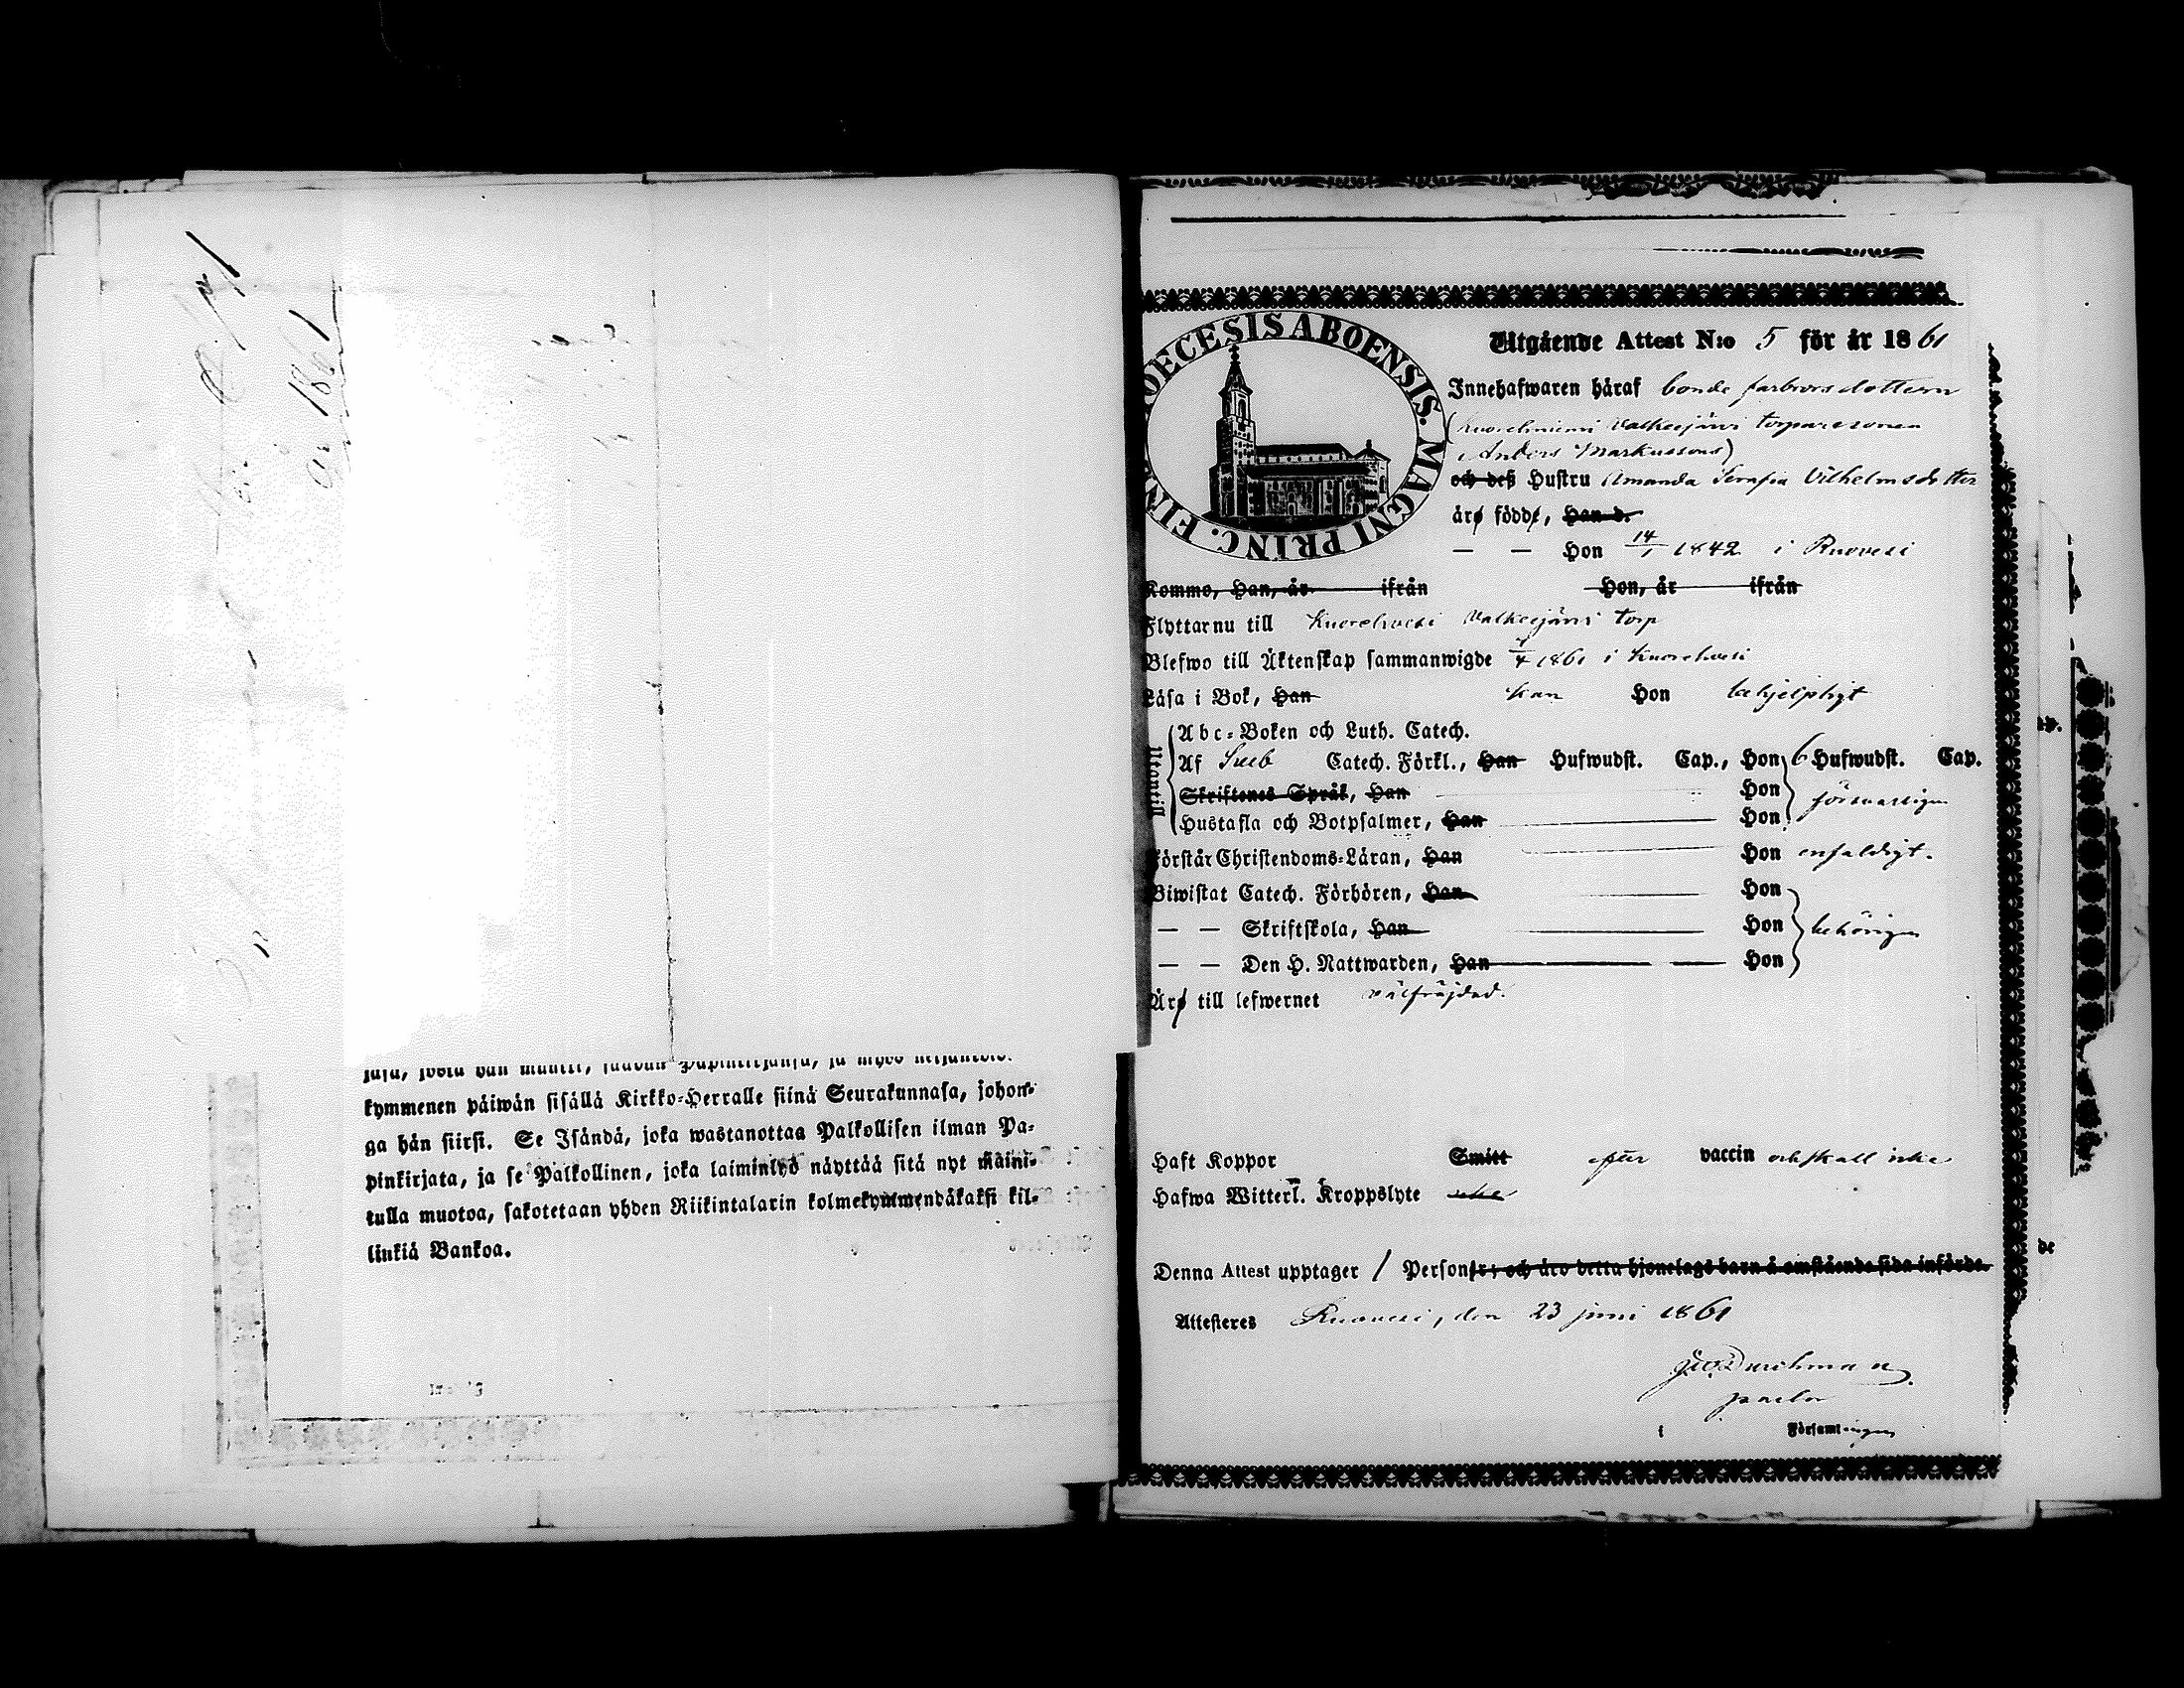 år 1861
jasa, josta hän muutti, saadun Papinkirjansa, ja myös neljäntois-
kymmenen päiwän sisällä Kirkko-Herralle siinä Seurakunnasa, johon-
ga hän siirsi. Se Isändä, joka wastanottaa Palkollisen ilman Pa-
pinkirjata, ja se Palkollinen, joka laiminlyö näyttää sitä nyt maini-
tulla muotoa, sakotetaan yhden Riikintalarin kolmekymmendäkaksi kil-
linkiä Bankoa.
DIOECESIS ABOENSIS. MAGNI PRINC. FINL.
Utgående Attest N:o 5 för år 1861
Innehafwaren häraf bonde farbrors dottern
(Kuorehniemi Valkeejärvi torparesonen
Anders Markussons)
och deß Hustru Amanda Serafia Vilhelmsdotter
äro födde, Han d.
— — Hon 14/1 1842 i Ruovesi
Kommo, Han, år ifrån Hon, år ifrån
Flyttar nu till Kuorehvesi Valkeejärvi torp
Blefwo till Äktenskap sammanwigde 1/4 1861 i Kuorehvesi
Läsa i Bok, Han kan Hon behjelpligt
Utantill
Abc-Boken och Luth. Catech.
Af Sveb Catech. Förkl., Han Hufwudst. Cap., Hon 6 Hufwudst. Cap.
Skriftenes Språk, Han Hon
Hustafla och Botpsalmer, Han Hon försvarligen
Förstår Christendoms-Läran, Han Hon enfaldigt.
Biwistat Catech. Förhören, Han Hon
— — Skriftskola, Han Hon behörigen
— — Den H. Nattwarden, Han Hon
Äro till lefwernet välfräjdad.
Haft Koppor Smitt efter vaccin och skall icke
Hafwa Witterl. Kroppslyte
Denna Attest upptager 1 Personer; och äro detta hjonelags barn å omstående sida införde.
Attesteres Ruovesi, den 23 juni 1861
Durchman
pastor
i Församlingen